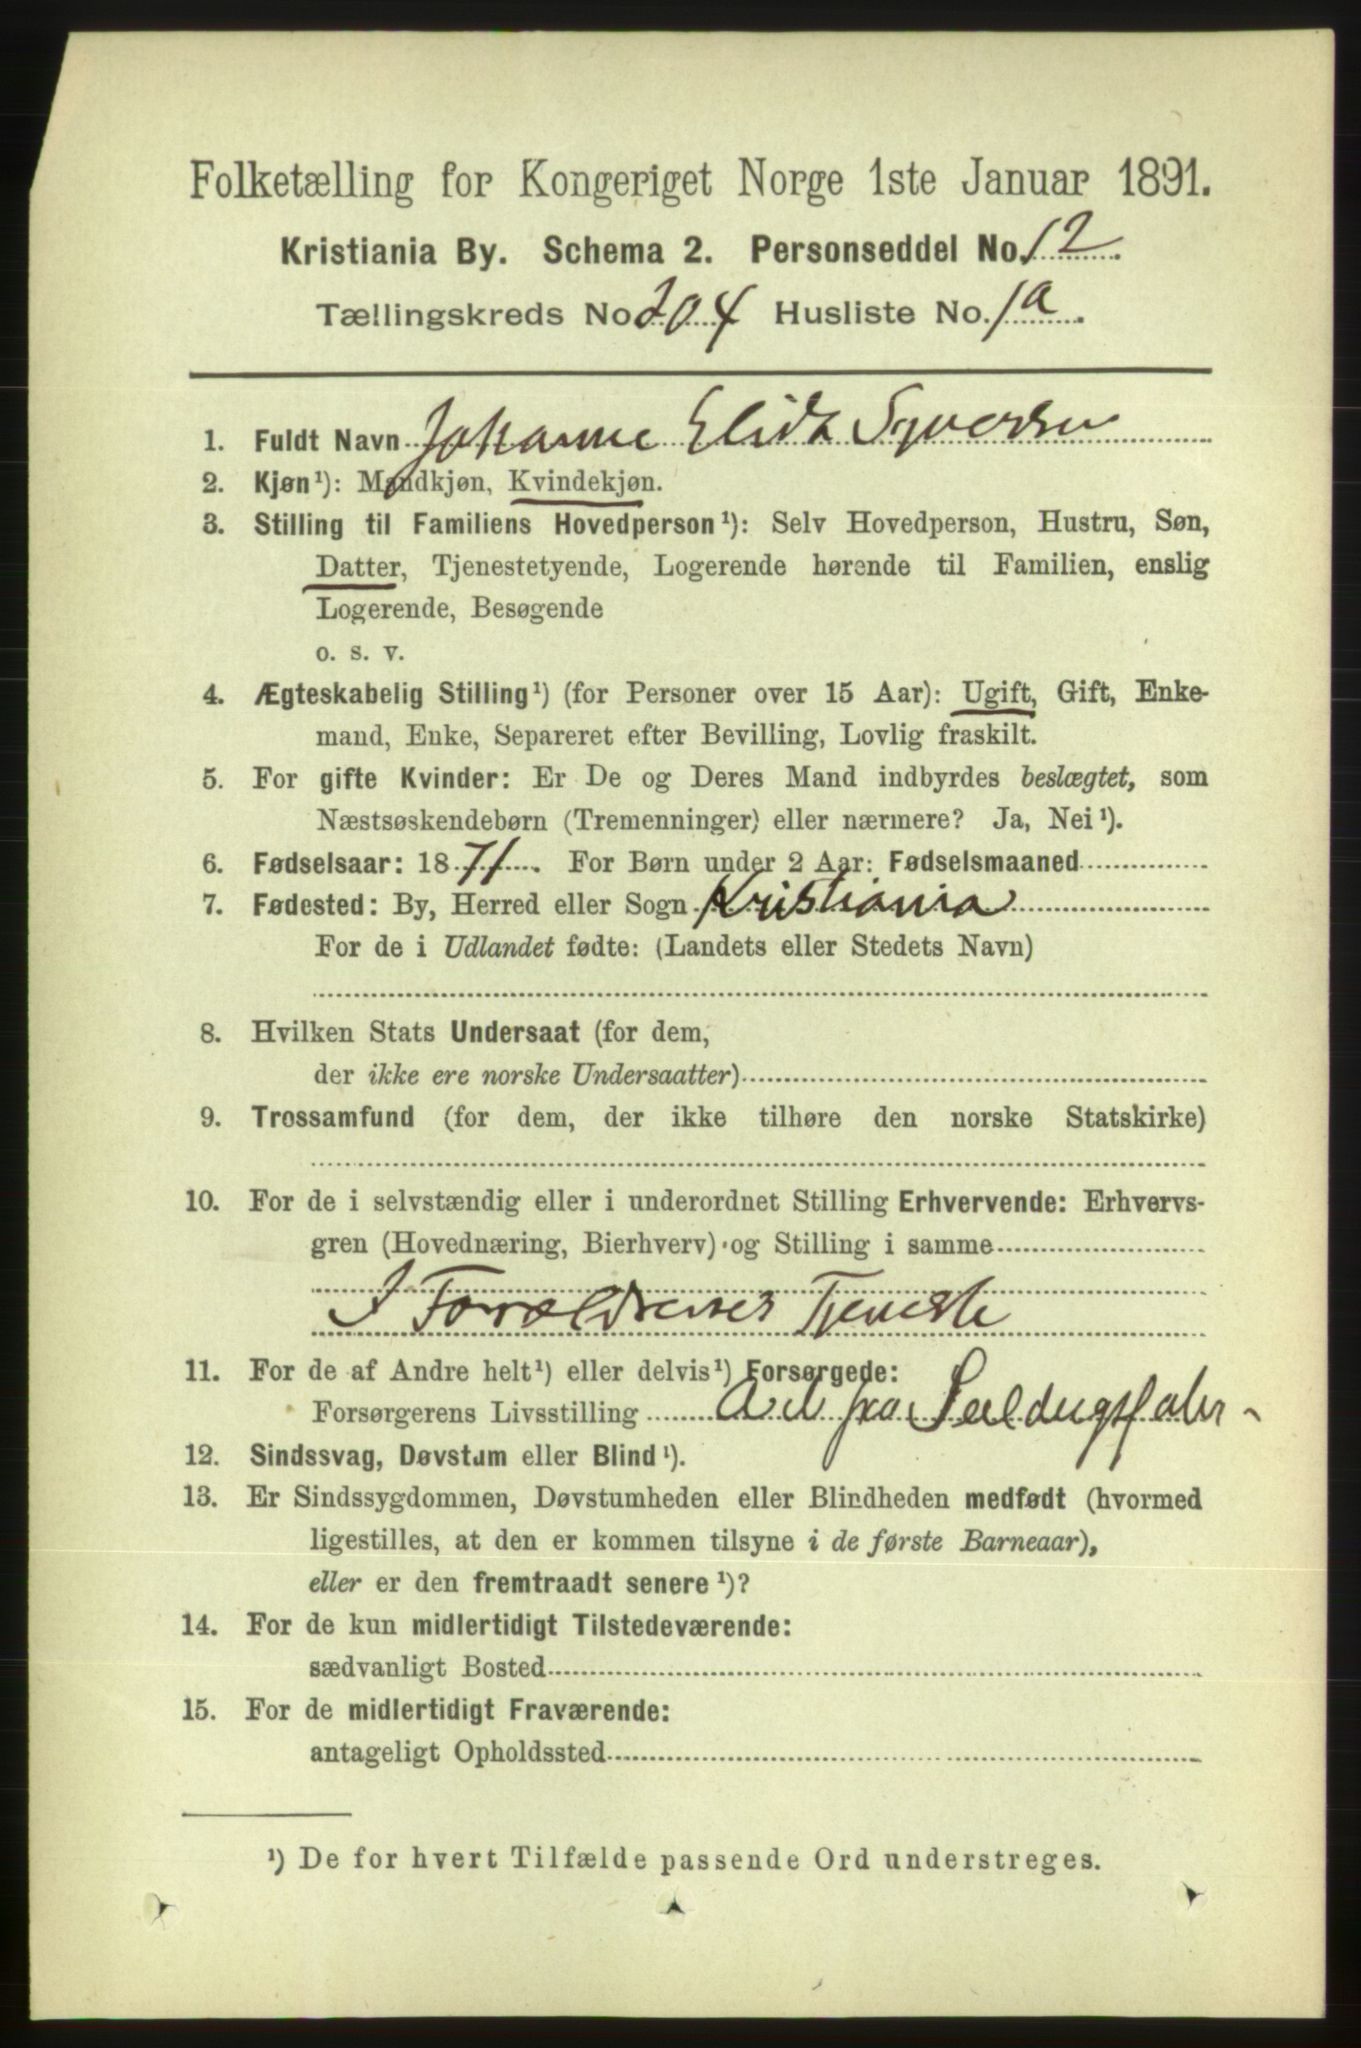 Folketælling for Kongeriget Norge 1ste Januar 1891.
Kristiania By. Schema 2. Personseddel No. 12.
Tællingskreds No 204 Husliste No. 1a.
1. Fuldt Navn Johanne Elida Syversen
2. Kjøn¹): Mandkjøn, Kvindekjøn.
3. Stilling til Familiens Hovedperson¹): Selv Hovedperson, Hustru, Søn,
Datter, Tjenestetyende, Logerende hørende til Familien, enslig
Logerende, Besøgende
o. s. v.
4. Ægteskabelig Stilling¹) (for Personer over 15 Aar): Ugift, Gift, Enke-
mand, Enke, Separeret efter Bevilling, Lovlig fraskilt.
5. For gifte Kvinder: Er De og Deres Mand indbyrdes beslægtet, som
Næstsøskendebørn (Tremenninger) eller nærmere? Ja, Nei¹).
6. Fødselsaar: 1871. For Børn under 2 Aar: Fødselsmaaned
7. Fødested: By, Herred eller Sogn Kristiania
For de i Udlandet fødte: (Landets eller Stedets Navn)
8. Hvilken Stats Undersaat (for dem,
der ikke ere norske Undersaatter)
9. Trossamfund (for dem, der ikke tilhøre den norske Statskirke)
10. For de i selvstændig eller i underordnet Stilling Erhvervende: Erhvervs-
gren (Hovednæring, Bierhverv) og Stilling i samme
I Forældrenes Tjeneste
11. For de af Andre helt¹) eller delvis¹) Forsørgede:
Forsørgerens Livsstilling
12. Sindssvag, Døvstum eller Blind¹).
13. Er Sindssygdommen, Døvstumheden eller Blindheden medfødt (hvormed
ligestilles, at den er kommen tilsyne i de første Barneaar),
eller er den fremtraadt senere¹)?
14. For de kun midlertidigt Tilstedeværende:
sædvanligt Bosted
15. For de midlertidigt Fraværende:
antageligt Opholdssted
¹) De for hvert Tilfælde passende Ord understreges.